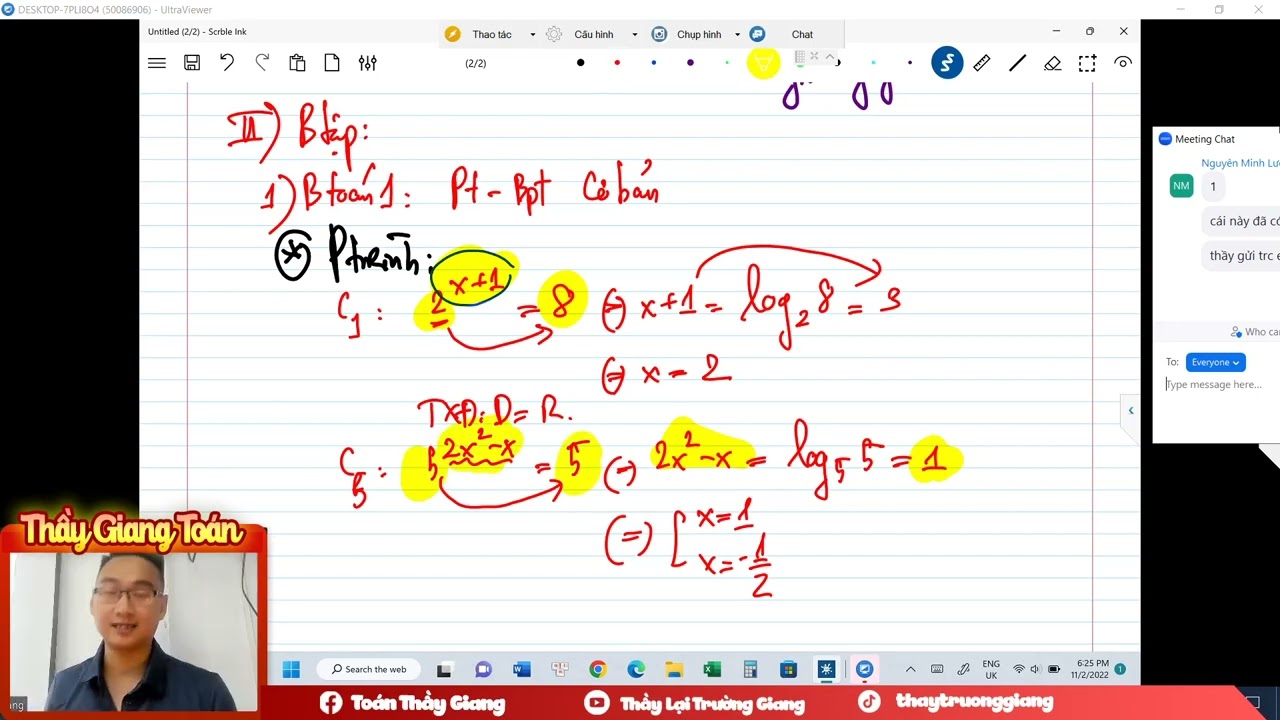 DESKTOP-7PLI8O4 (50086906) - UltraViewer
Untitled (2/2) - Scrble Ink
Thao tác
Cấu hình
Chụp hình
Chat
(2/2)
II) B tập:
1) B toán 1: Pt - Bpt Cơ bản
* Ptrình:
C1: 2^(x+1) = 8 (=) x+1 = log_2 8 = 3
(=) x = 2
TXĐ: D = R.
C5: 5^(2x^2-x) = 5 (=) 2x^2-x = log_5 5 = 1
(=) [ x = 1
x = -1/2
Meeting Chat
Nguyên Minh Lư
NM
1
cái này đã c
thầy gửi trc e
Who ca
To: Everyone
Type message here...
Thầy Giang Toán
ang
Search the web
ENG
UK
6:25 PM
11/2/2022
1
Toán Thầy Giang
Thầy Lại Trường Giang
thaytruonggiang